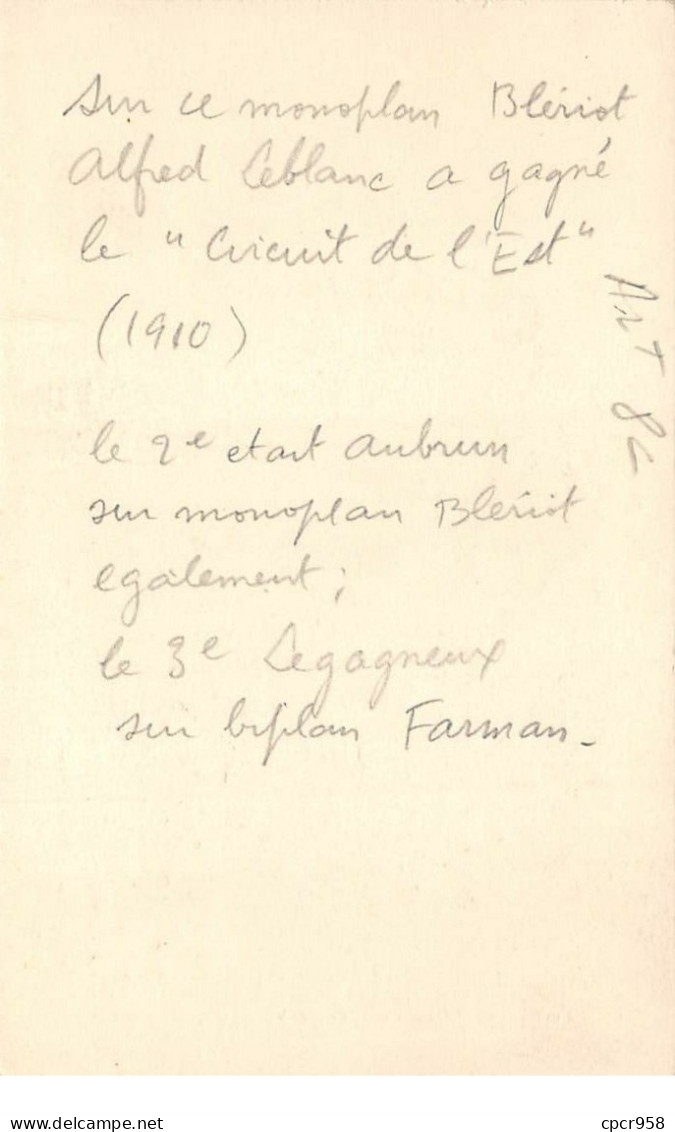 sur ce monoplan Blériot
Alfred Leblanc a gagné
le "Circuit de l'Est"
(1910)
le 2e etait Aubrun
sur monoplan Blériot
egalement ;
le 3e Legagneux
sur biplan Farman -
delcampe.net
cpcr958